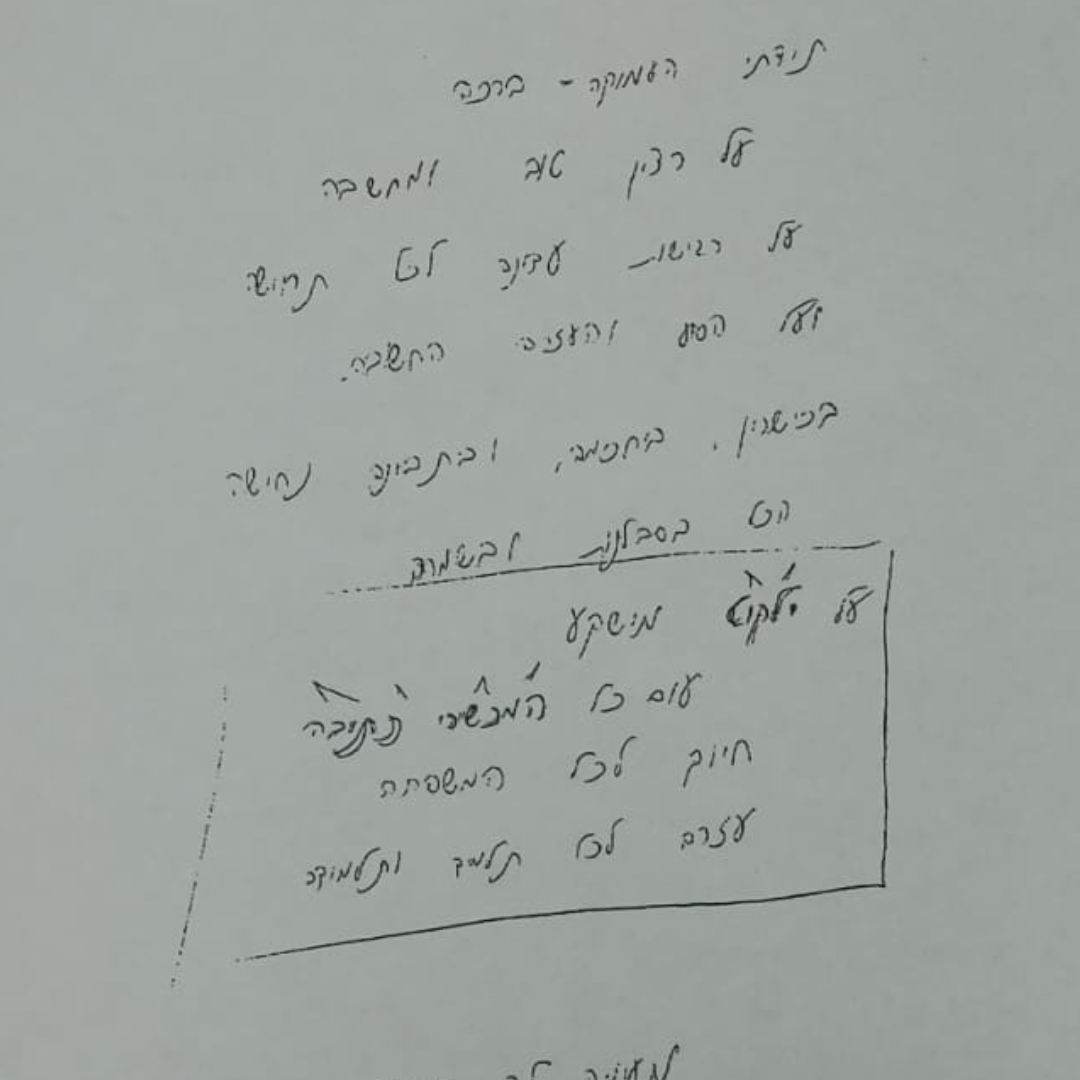 תודתי העמוקה - ברכה
על רצון טוב ומחשבה
על רגישות עדינה לכל תחושה
ועל הסיוע והעזרה החשובה.
בכישרון, בחכמה, ובתבונה נחושה
הכל בסבלנות ובשמחה
על ילקוט מושקע
עם כל המכשירי כתיבה
חיוך לכל המשפחה
עזרה לכל תלמיד ותלמידה